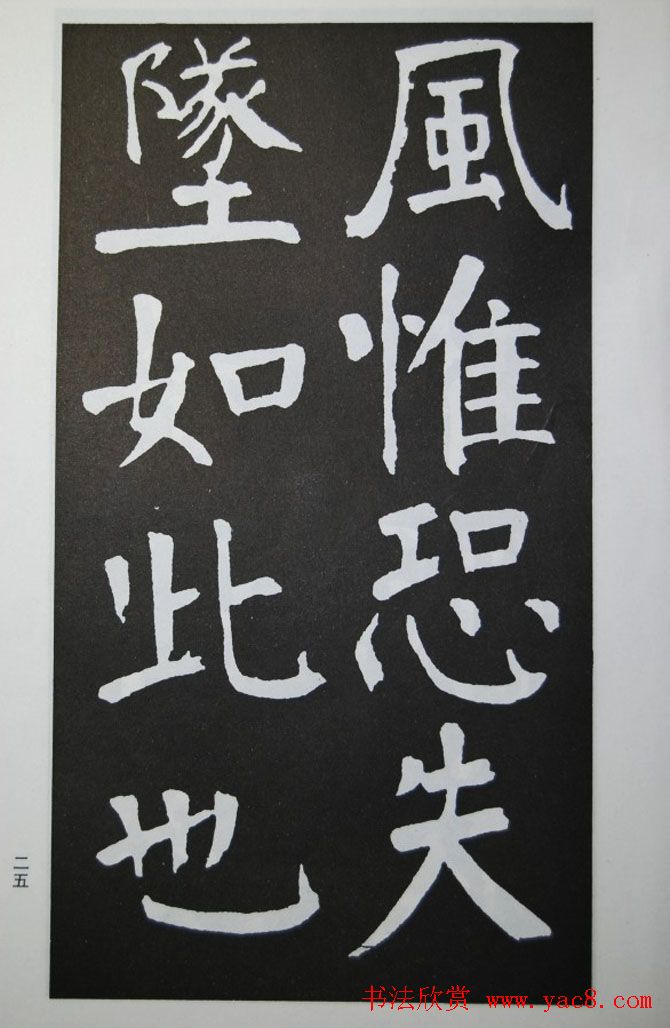 風惟恐失
墜如此也
二五
书法欣赏 www.yac8.com